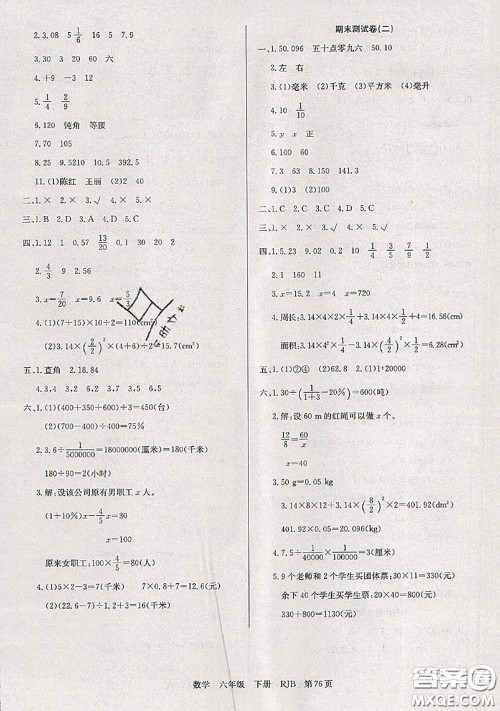 2. 3.08 5 1/6 16 5 7.5
3. 15 6 5 0.9
4. +9 -3 百 十
5. 1/4 2/9
6. 120 钝角 等腰
7. 70 60
8. 25 9.5210 35 392.5
11. (1)陈红 王丽 (2)2 40
二、1. × 2. × 3. √ 4. × 5. √
三、1. B 2. D 3. A 4. D 5. C
四、1. 12 1 0.6 13/20 0.1 30 20 2
2. 4/3 9 56
3. x=7/20 x=9.6 x=5/3
4. (1)(7+15)×10÷2=110(cm²)
(2)3.14×(2/2)²×(4+6)÷2=15.7(cm³)
五、1. 直角 2. 18.84
4. 3,4 3,2 6,2 5,3 6,4
六、1. (1)(400+350+600)÷3=450(台)
(2)(700-400)÷400=75%
2. 3.6÷1/5000000=18000000(厘米)=180(千米)
180÷90=2(小时)
3. 解:设该公司原有男职工 x 人。
(1-1/10)x-4/5x=30
x=100
原来女职工:100×4/5=80(人)
4. (1)5×2-3=7(千米) 7×0.9+1.2×3=9.9(元)
(2)(22.2-3×1.2)÷0.9+3=11(千米)
期末测试卷(二)
一、1. 50.096 五十点零九六 50.10
2. 左 右
3. (1)毫米 (2)千克 (3)平方米 (4)毫升
4. 10 1/10
5. y x 正
7. 60 80
8. 25.12 75.36
9. (1)3 (2)120
二、1. √ 2. × 3. × 4. × 5. ×
三、1. C 2. A 3. C 4. D 5. C
四、1. 5.23 9.02 0.2 1/4 3/5 7/9 4/5
2. 1 160 11
3. x=0.5 x=4 x=720
4. 周长:3.14×4×2×1/4+3.14×4×1/2+4=16.56(cm)
面积:3.14×4²×1/4-3.14×(4/2)²×1/2=6.28(cm²)
五、1. (1)②④ (2)62.8 2. 略
六、1. 30÷(1/(1+3)-20%)=600(吨)
2. 解:设 60 m 的红绳可以做 x 个。
12/8=60/x
x=40
3. 50 g=0.05 kg
3.14×8×10+3.14×(8/2)²×2=401.92(dm²)
401.92×0.05=20.096(kg)
4. 7.5÷1/40000×1/10000=30(厘米)
5. 9 个老师和 2 个学生买团体票:30×11=330(元)
剩下 40 个学生买学生票:20×40=800(元)
330+800=1130(元)
数学 六年级 下册 RJB 第76页
答案圈
MXQE.COM